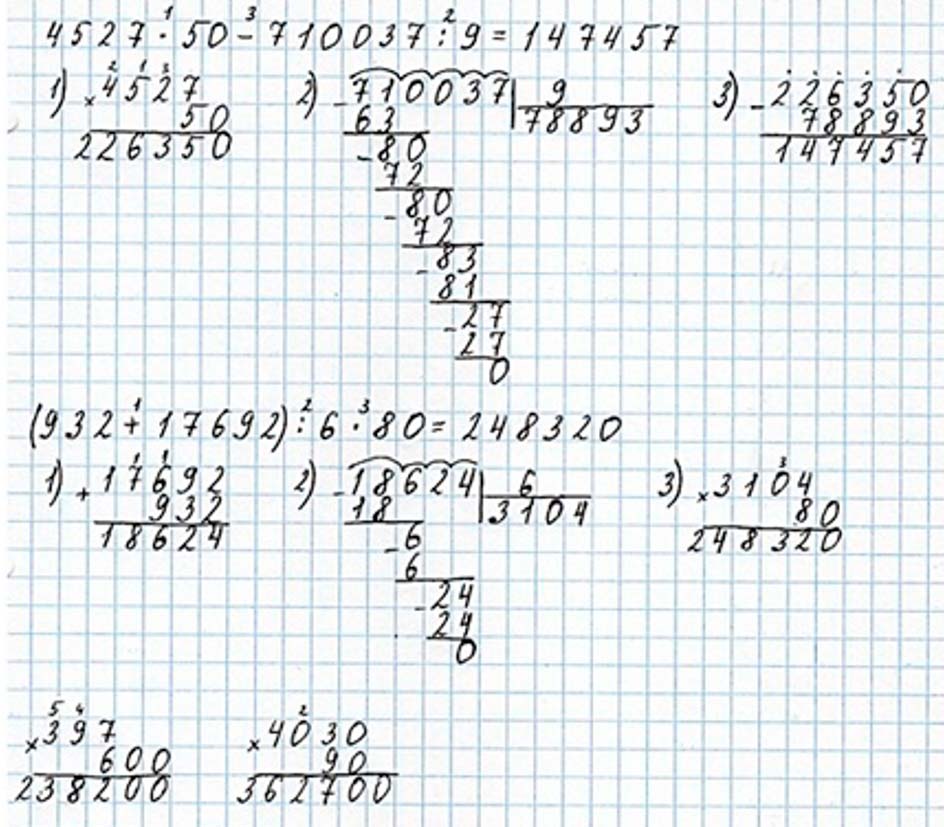 4527 · 50 - 710037 : 9 = 147457
1 3 2
1) × 4527 50 226350
2 1 3
2) - 710037 | 9
78893
63
- 80
72
- 80
72
- 83
81
- 27
27
0
3) - 226350
78893
147457
(932 + 17692) : 6 · 80 = 248320
1 2 3
1) + 17692
1 1
932
18624
2) - 18624 | 6
3104
18
- 6
6
- 24
24
0
3) × 3104
3
80
248320
5 4
× 397
600
238200
2
× 4030
90
362700